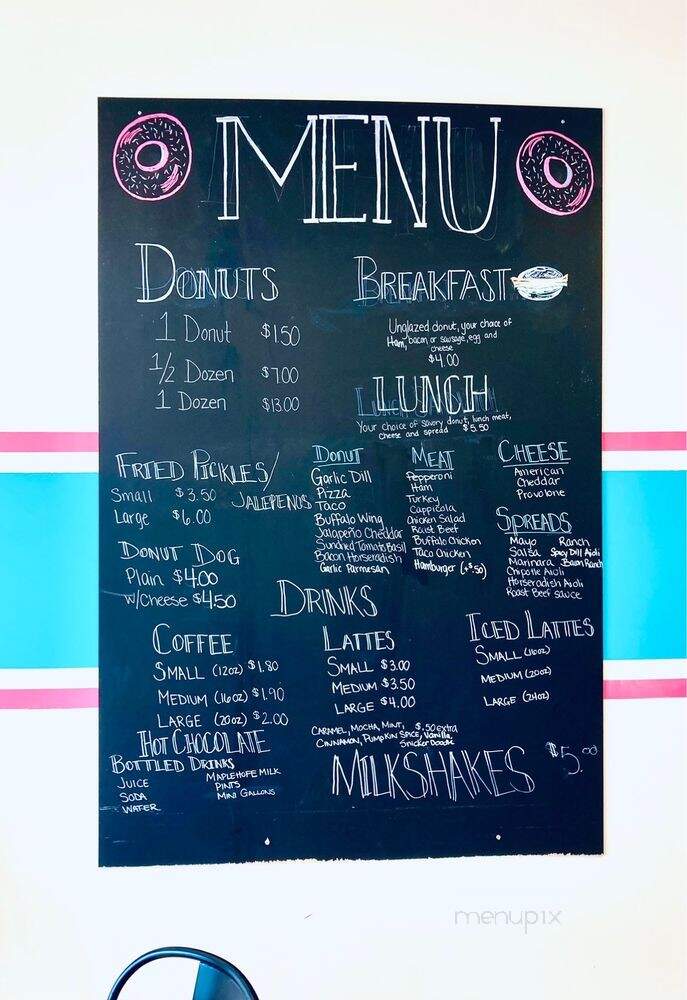 MENU
DONUTS
1 Donut $1.50
1/2 Dozen $7.00
1 Dozen $13.00
BREAKFAST
Unglazed donut, your choice of
Ham, bacon, or sausage, egg and
cheese
$4.00
LUNCH
Your choice of savory donut, lunch meat,
cheese and spread $5.50
FRIED PICKLES/
JALEPENOS
Small $3.50
Large $6.00
DONUT DOG
Plain $4.00
w/Cheese $4.50
DONUT
Garlic Dill
Pizza
Taco
Buffalo Wing
Jalapeño Cheddar
Sundried Tomato Basil
Bacon Horseradish
Garlic Parmesan
MEAT
Pepperoni
Ham
Turkey
Cappicola
Chicken Salad
Roast Beef
Buffalo Chicken
Taco Chicken
Hamburger (+$.50)
CHEESE
American
Cheddar
Provolone
SPREADS
Mayo Ranch
Salsa Spicy Dill Aioli
Marinara Bacon Ranch
Chipotle Aioli
Horseradish Aioli
Roast Beef sauce
DRINKS
COFFEE
SMALL (12oz) $1.80
MEDIUM (16oz) $1.90
LARGE (20oz) $2.00
LATTES
SMALL $3.00
MEDIUM $3.50
LARGE $4.00
ICED LATTES
SMALL (16oz)
MEDIUM (20oz)
LARGE (24oz)
CARAMEL, MOCHA, MINT, $.50 extra
CINNAMON, PUMPKIN SPICE, Vanilla,
Snicker Doodle
HOT CHOCOLATE
BOTTLED DRINKS
JUICE
SODA
WATER
MAPLEHOFE MILK
PINTS
MINI GALLONS
MILKSHAKES $5.00
menupix